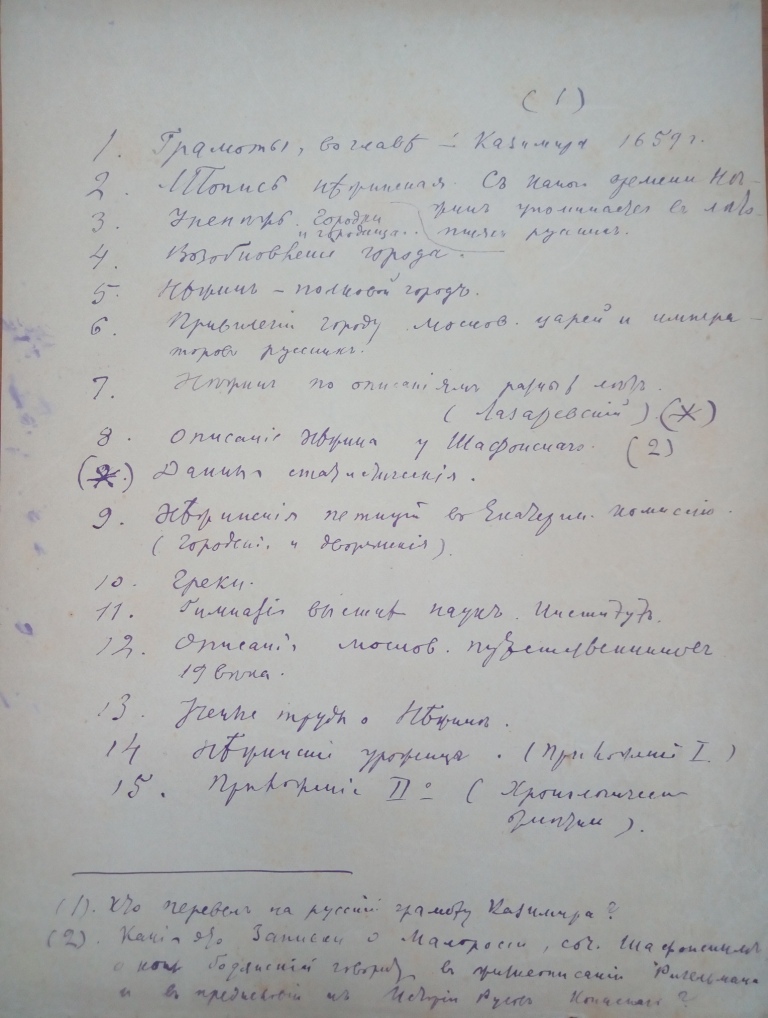 (1)
1. Грамоты, во главѣ – Казимира 1659 г.
2. Лѣтопись нѣжинская. Съ какого времени Нѣ-
жинъ упоминается въ лѣто-
писяхъ русскихъ.
3. Городки
и городища..
4. Возобновленіе города.
5. Нѣжинъ – полковой городъ.
6. Привилегіи городу москов. царей и импера-
торовъ русскихъ.
7. Нѣжинъ по описаніямъ разныхъ лѣтъ.
(Лазаревскій) (X)
8. Описаніе Нѣжина у Шафонскаго. (2)
Данныя статистическія.
9. Нѣжинскія петиціи въ Екатерин. комиссію.
(Городскія и дворянскія).
10. Греки.
11. Гимназія высшихъ наукъ. Институтъ.
12. Описанія москов. путешественниковъ
19 вѣка.
13. Ученые труды о Нѣжинѣ.
14 Нѣжинскіе уроженцы. (Приложеніе I.)
15. Приложеніе II° (Хронологическія
).
(1). Кто перевелъ на русскій грамоту Казимира?
(2). Какія это Записки о Малороссіи, соч. Шафонскимъ
о коихъ Бодянскій говоритъ въ жизнеописаніи Ригельмана
и въ предисловіи къ Исторіи Русовъ Конискаго?